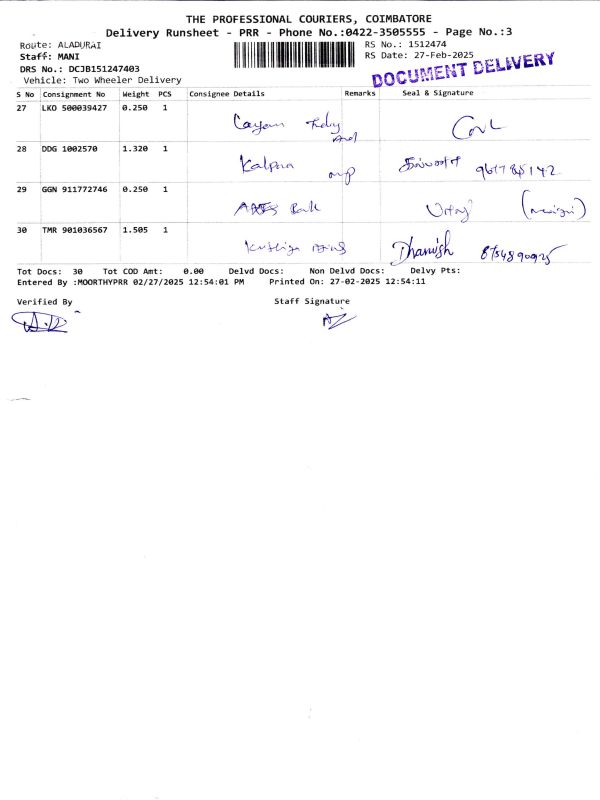 THE PROFESSIONAL COURIERS, COIMBATORE
Delivery Runsheet - PRR - Phone No.:0422-3505555 - Page No.:3
Route: ALADURAI
RS No.: 1512474
Staff: MANI
RS Date: 27-Feb-2025
DRS No.: DCJB151247403
DOCUMENT DELIVERY
Vehicle: Two Wheeler Delivery
S No Consignment No Weight PCS Consignee Details Remarks Seal & Signature
27 LKO 500039427 0.250 1
28 DDG 1002570 1.320 1 Kalpana
29 GGN 911772746 0.250 1 Bank
30 TMR 901036567 1.505 1 Dhanish
Tot Docs: 30 Tot COD Amt: 0.00 Delvd Docs: Non Delvd Docs: Delvy Pts:
Entered By :MOORTHYPRR 02/27/2025 12:54:01 PM Printed On: 27-02-2025 12:54:11
Verified By Staff Signature